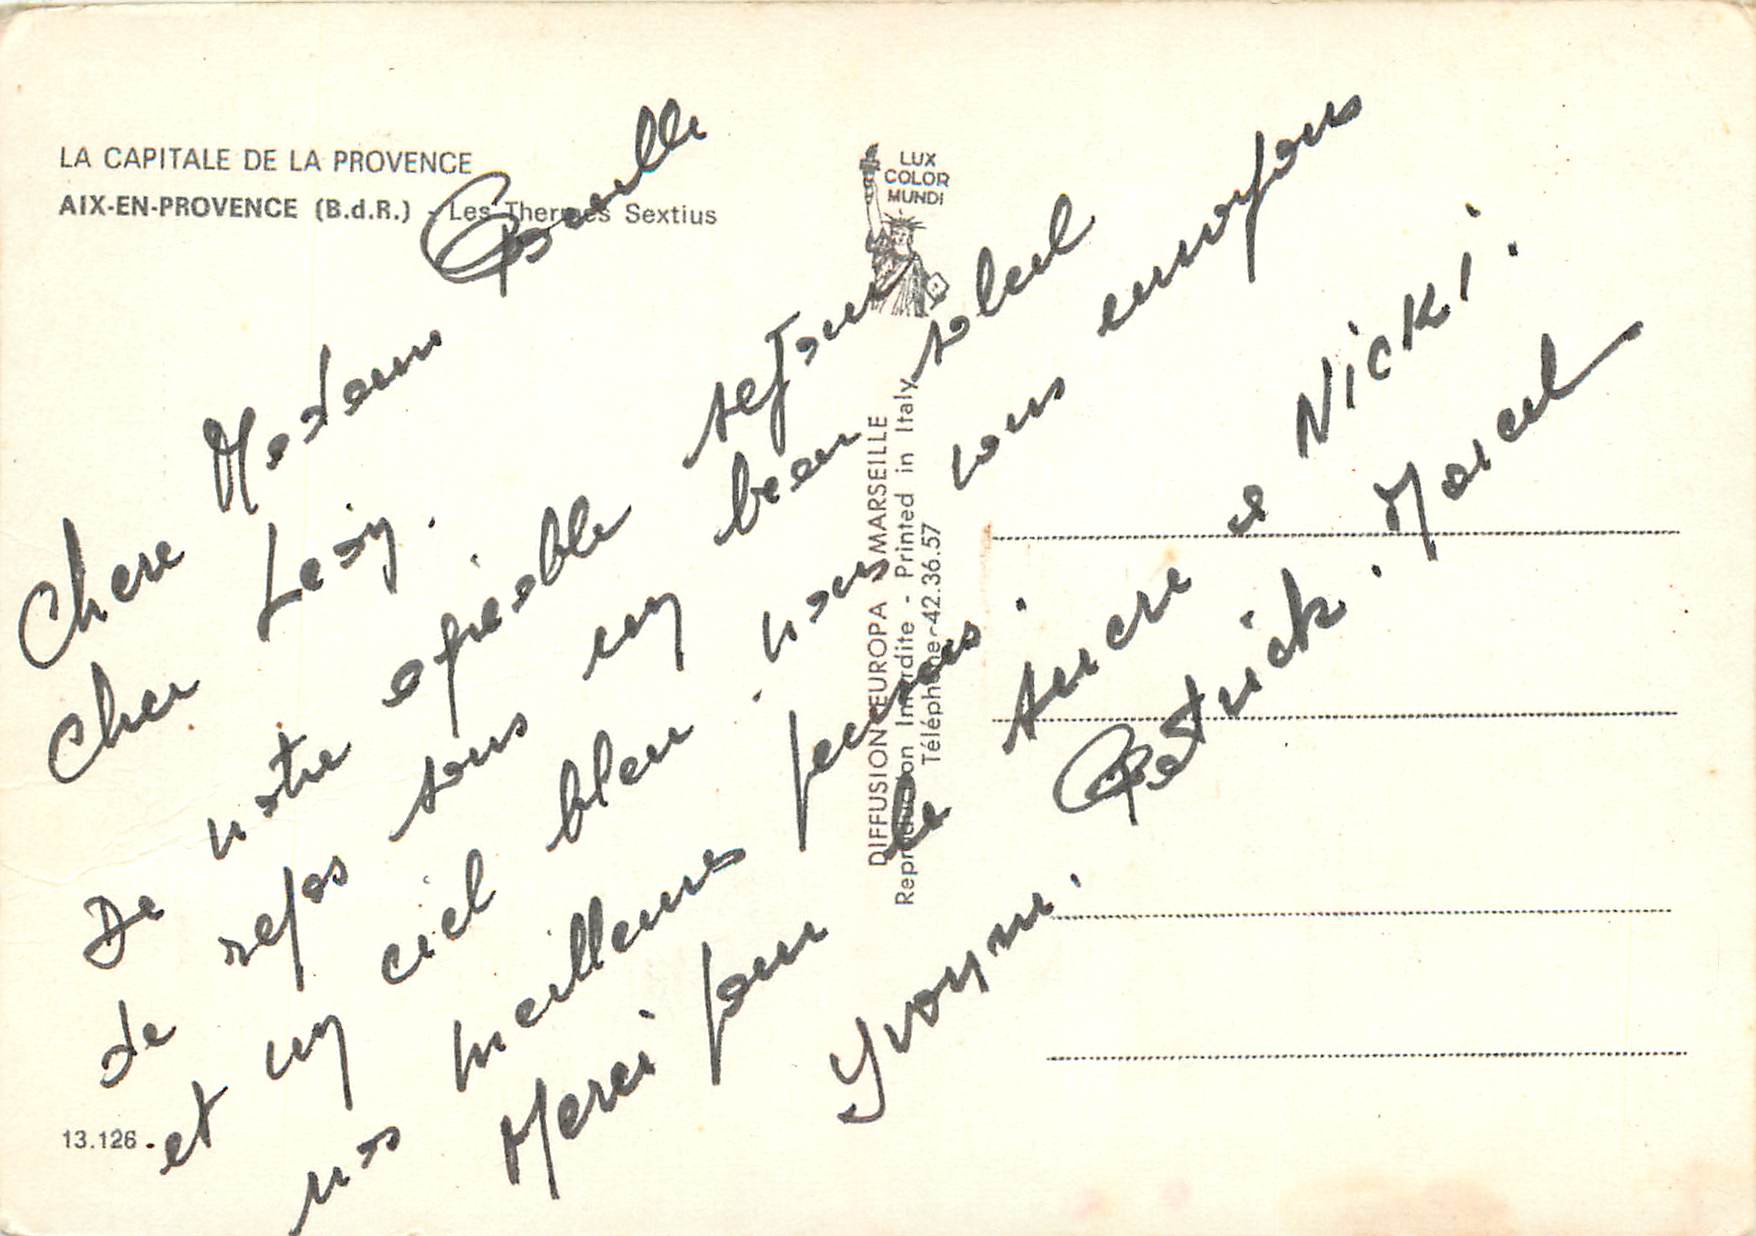 LA CAPITALE DE LA PROVENCE
AIX-EN-PROVENCE (B.d.R.) - Les Thermes Sextius
LUX
COLOR
MUNDI
DIFFUSION EUROPA MARSEILLE
Reproduction Interdite - Printed in Italy
Téléphone 42.36.57
13.126
Chere Madame
Cher
De notre agréable sejour
de repos sous un beau soleil
et un ciel bleu. nous vous envoyons
nos meilleures pensées.
Merci pour le sucre a Nicki.
Yvonne. Patrick. Marcel